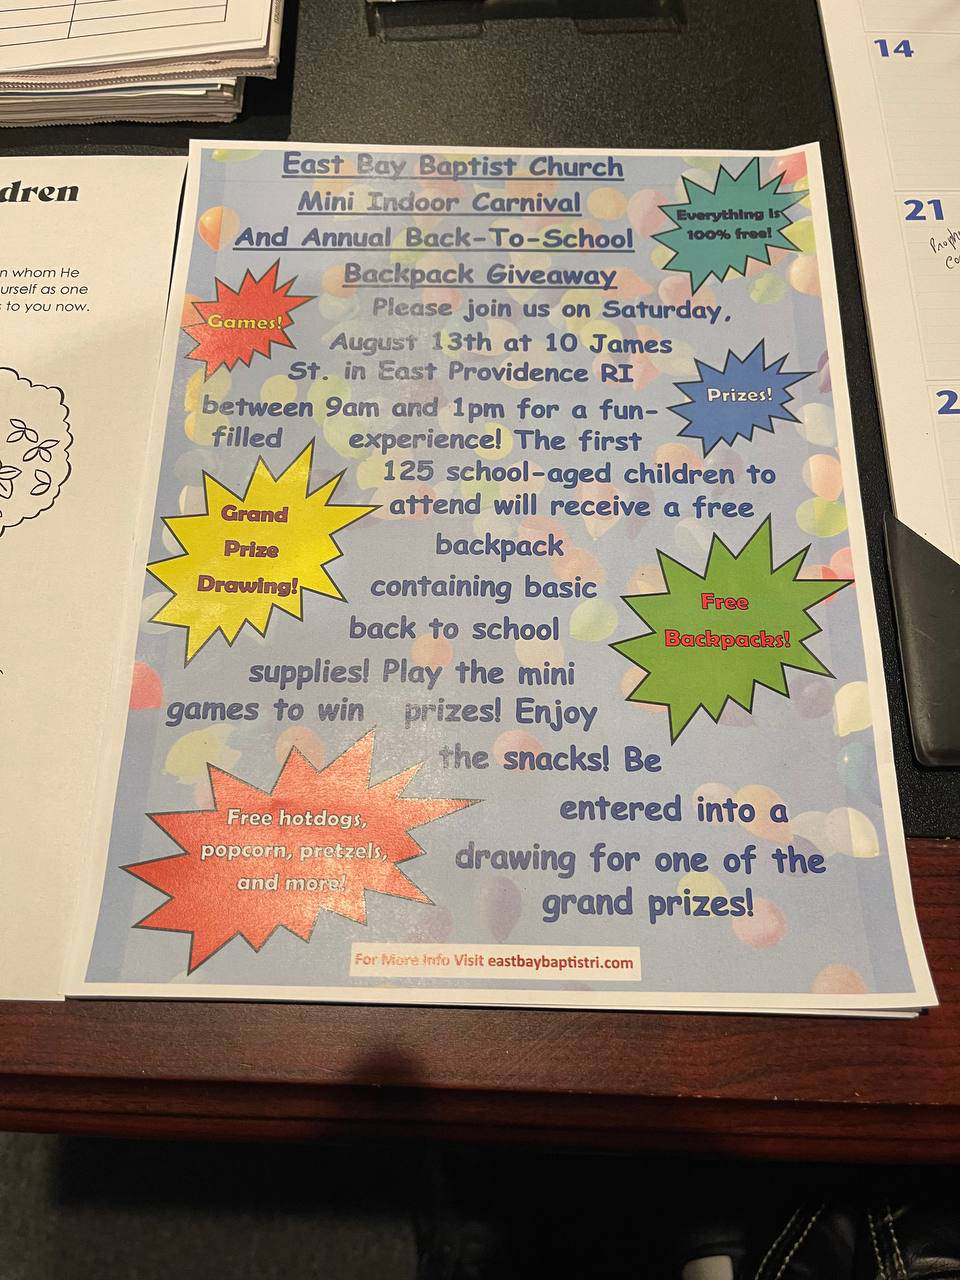 East Bay Baptist Church
Mini Indoor Carnival
And Annual Back-To-School
Backpack Giveaway
Everything is
100% free!
Games!
Please join us on Saturday,
August 13th at 10 James
St. in East Providence RI
Prizes!
between 9am and 1pm for a fun-
filled experience! The first
125 school-aged children to
attend will receive a free
Grand
Prize
Drawing!
backpack
containing basic
back to school
Free
Backpacks!
supplies! Play the mini
games to win prizes! Enjoy
the snacks! Be
Free hotdogs,
popcorn, pretzels,
and more!
entered into a
drawing for one of the
grand prizes!
For More Info Visit eastbaybaptistri.com
dren
n whom He
urself as one
s to you now.
14
21
2